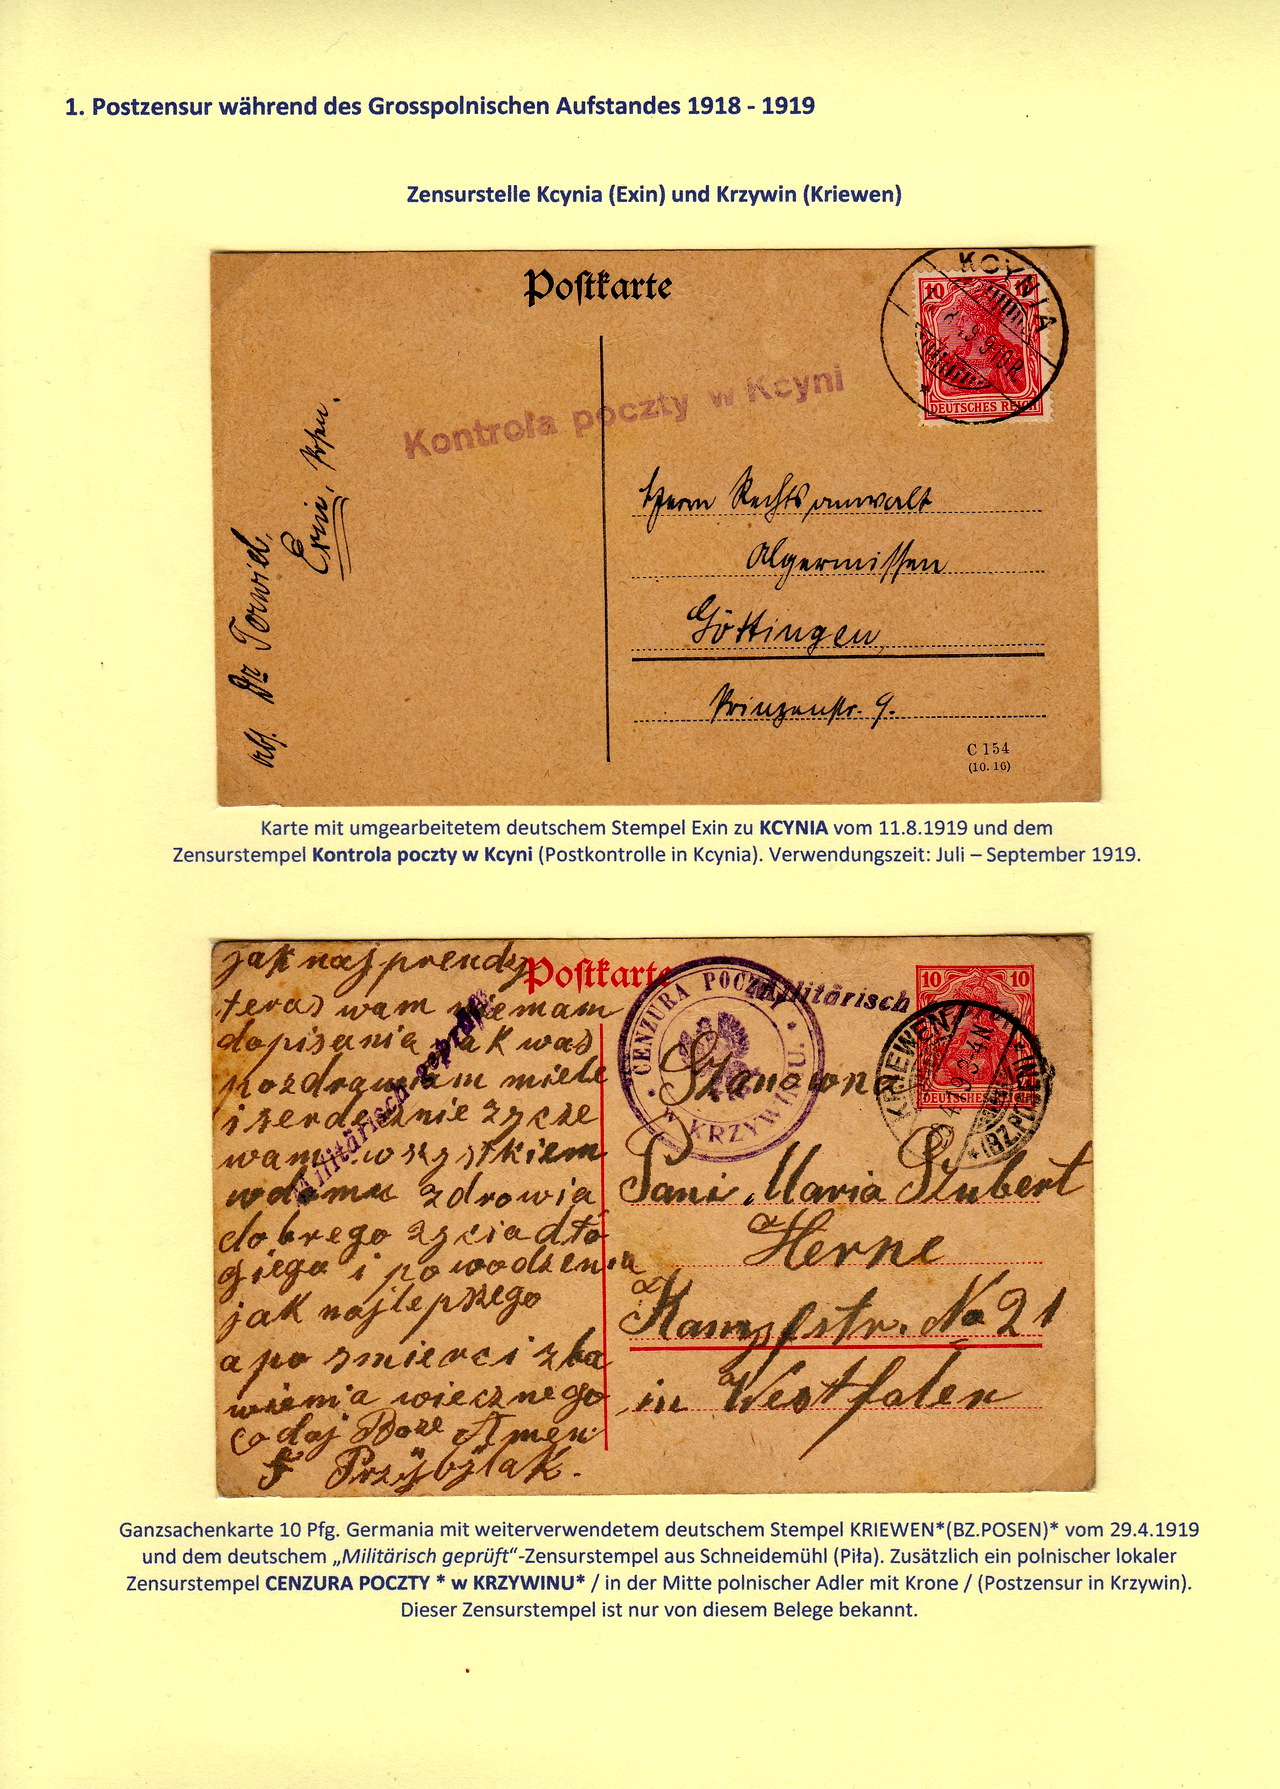 1. Postzensur während des Grosspolnischen Aufstandes 1918 - 1919
Zensurstelle Kcynia (Exin) und Krzywin (Kriewen)
Postkarte
KCYNIA
10 10
DEUTSCHES REICH
Kontrola poczty w Kcyni
Dr Torwiel,
Exin, Posen.
Herrn Rechtsanwalt
Algermissen
Göttingen
Prinzenstr. 9.
C 154
(10. 16)
Karte mit umgearbeitetem deutschem Stempel Exin zu KCYNIA vom 11.8.1919 und dem
Zensurstempel Kontrola poczty w Kcyni (Postkontrolle in Kcynia). Verwendungszeit: Juli – September 1919.
Postkarte
jak naj prendzy
teras wam niemam
dopisania jak was
pozdrawiam miele
i serdecznie zycze
wam wszystkiem
wdomu zdrowia
dobrego zycia dłó
giego i powodzenia
jak najlepszego
a po smierci zba
wienia wiecznego
co daj Boze Amen
F Przÿbÿlak.
Militärisch geprüft
CENZURA POCZTY * W KRZYWINU. *
Militärisch
10 10
DEUTSCHES REICH
KRIEWEN * (BZ.POSEN) *
Szanowna
Pani Maria Stubert
Herne
Kampfstr. No 21
in Westfalen
Ganzsachenkarte 10 Pfg. Germania mit weiterverwendetem deutschem Stempel KRIEWEN*(BZ.POSEN)* vom 29.4.1919
und dem deutschem „Militärisch geprüft“-Zensurstempel aus Schneidemühl (Piła). Zusätzlich ein polnischer lokaler
Zensurstempel CENZURA POCZTY * w KRZYWINU* / in der Mitte polnischer Adler mit Krone / (Postzensur in Krzywin).
Dieser Zensurstempel ist nur von diesem Belege bekannt.